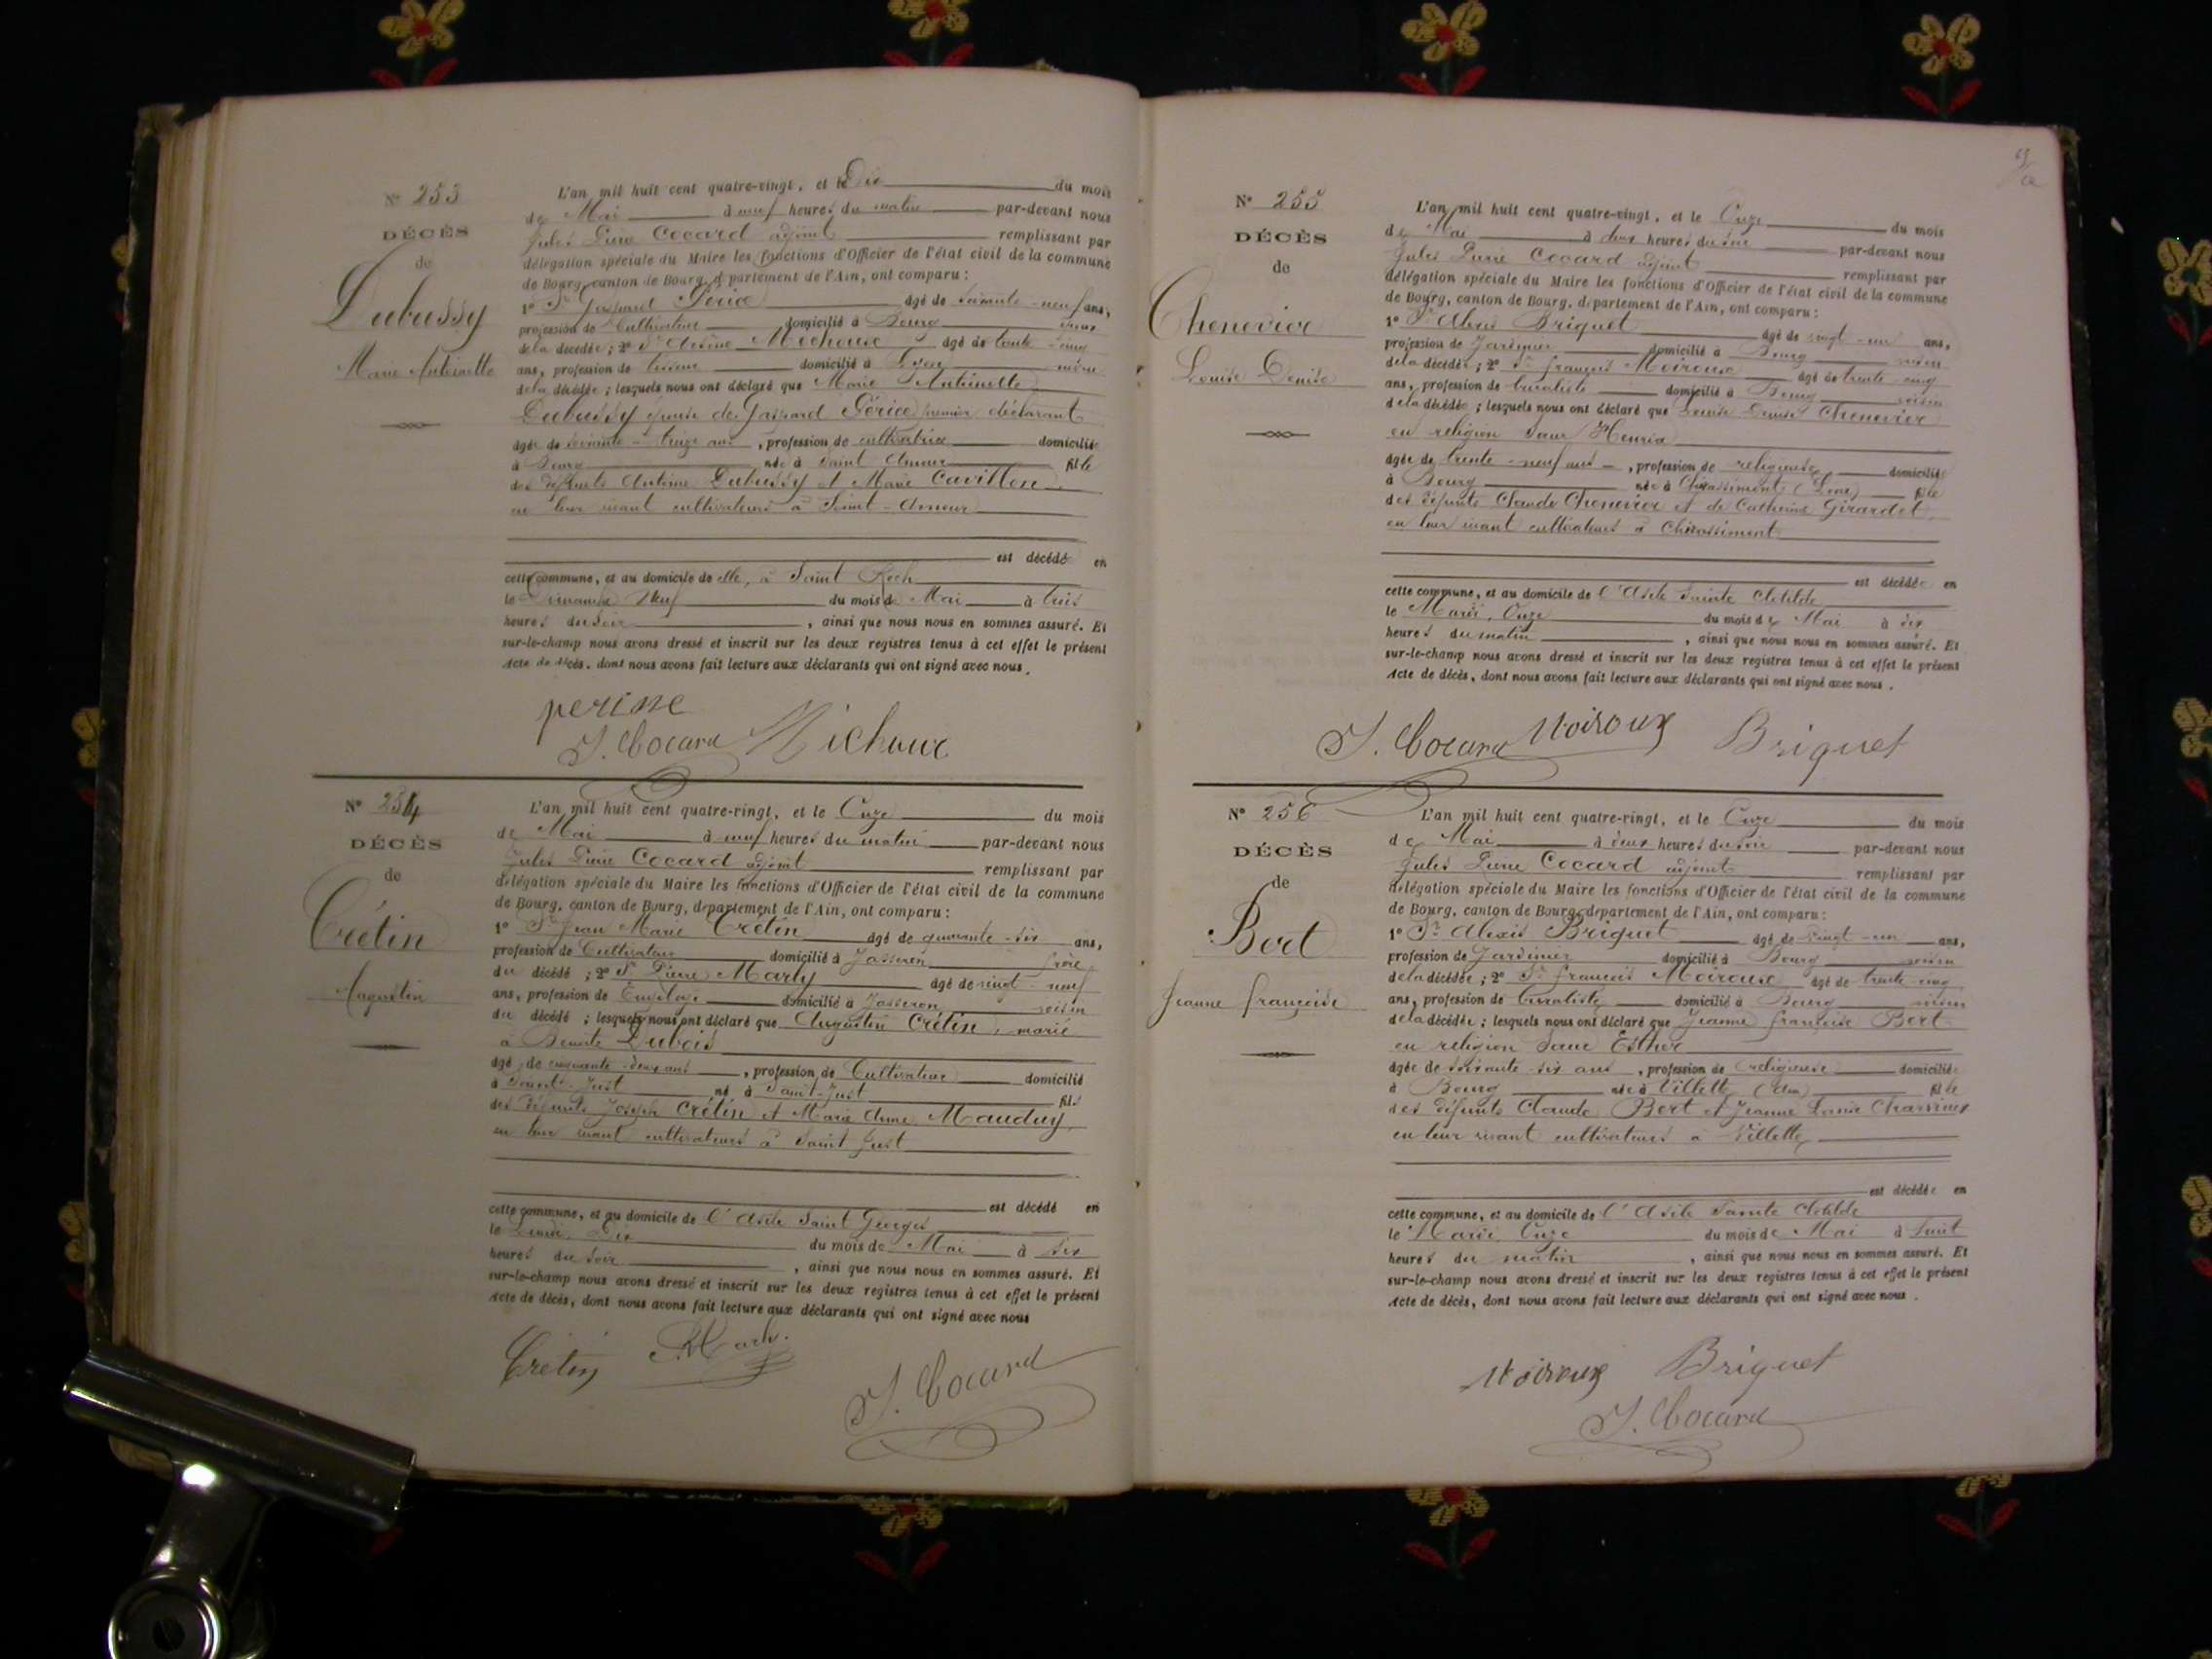 N° 253
DÉCÈS
de
Dubussy
Marie Antoinette
L'an mil huit cent quatre-vingt, et le Dix du mois
de Mai à neuf heures du matin par-devant nous
Jules Pierre Cocard adjoint remplissant par
délégation spéciale du Maire les fonctions d'Officier de l'état civil de la commune
de Bourg, canton de Bourg, département de l'Ain, ont comparu :
1° Sr Gaspard âgé de soixante-neuf ans,
profession de Cultivateur domicilié à Bourg époux
de la décédée ; 2° Sr âgé de trente-cinq
ans, profession de domicilié à
de la décédée ; lesquels nous ont déclaré que Marie Antoinette
Dubussy épouse de Gaspard premier déclarant
âgée de soixante-treize ans, profession de cultivatrice domicilié
à Bourg née à Saint Amour fille
des défunts Antoine Dubussy et Marie Cavillon
en leur vivant cultivateurs à Saint-Amour
est décédé en
cette commune, et au domicile de elle, à Saint Roch
le Dimanche Neuf du mois de Mai à trois
heures du soir, ainsi que nous nous en sommes assuré. Et
sur-le-champ nous avons dressé et inscrit sur les deux registres tenus à cet effet le présent
Acte de décès, dont nous avons fait lecture aux déclarants qui ont signé avec nous.
J. Cocard
N° 254
DÉCÈS
de
Crétin
Augustin
L'an mil huit cent quatre-vingt, et le Onze du mois
de Mai à neuf heures du matin par-devant nous
Jules Pierre Cocard adjoint remplissant par
délégation spéciale du Maire les fonctions d'Officier de l'état civil de la commune
de Bourg, canton de Bourg, département de l'Ain, ont comparu :
1° Sr Jean Marie Crétin âgé de quarante-six ans,
profession de Cultivateur domicilié à Jasseron frère
du décédé ; 2° Sr Pierre Marly âgé de vingt-neuf
ans, profession de domicilié à Jasseron voisin
du décédé ; lesquels nous ont déclaré que Augustin Crétin, marié
à Benoite Dubois
âgé de cinquante-deux ans, profession de Cultivateur domicilié
à Saint-Just né à Saint-Just fils
des défunts Joseph Crétin et Marie Anne Mauduy,
en leur vivant cultivateurs à Saint Just
est décédé en
cette commune, et au domicile de l'Asile Saint Georges
le Lundi Dix du mois de Mai à six
heures du soir, ainsi que nous nous en sommes assuré. Et
sur-le-champ nous avons dressé et inscrit sur les deux registres tenus à cet effet le présent
Acte de décès, dont nous avons fait lecture aux déclarants qui ont signé avec nous
Crétin
J. Cocard
N° 255
DÉCÈS
de
Chenevier
Louise Denise
L'an mil huit cent quatre-vingt, et le Onze du mois
de Mai à deux heures du soir par-devant nous
Jules Pierre Cocard adjoint remplissant par
délégation spéciale du Maire les fonctions d'Officier de l'état civil de la commune
de Bourg, canton de Bourg, département de l'Ain, ont comparu :
1° Sr Alexis Briquet âgé de vingt-un ans,
profession de Jardinier domicilié à Bourg voisin
de la décédée ; 2° Sr François Moiroux âgé de trente-cinq
ans, profession de buraliste domicilié à Bourg voisin
de la décédée ; lesquels nous ont déclaré que Louise Denise Chenevier
en religion Sœur
âgée de trente-neuf ans, profession de religieuse domicilié
à Bourg née à Chirassiment (Loire) fille
des défunts Claude Chenevier et de Catherine Girardet,
en leur vivant cultivateurs à Chirassiment
est décédée en
cette commune, et au domicile de l'Asile Sainte Clotilde
le Mardi, Onze du mois de Mai à dix
heures du matin, ainsi que nous nous en sommes assuré. Et
sur-le-champ nous avons dressé et inscrit sur les deux registres tenus à cet effet le présent
Acte de décès, dont nous avons fait lecture aux déclarants qui ont signé avec nous.
J. Cocard Moiroux Briquet
N° 256
DÉCÈS
de
Bert
Jeanne Françoise
L'an mil huit cent quatre-vingt, et le Onze du mois
de Mai à deux heures du soir par-devant nous
Jules Pierre Cocard adjoint remplissant par
délégation spéciale du Maire les fonctions d'Officier de l'état civil de la commune
de Bourg, canton de Bourg, département de l'Ain, ont comparu :
1° Sr Alexis Briquet âgé de vingt-un ans,
profession de Jardinier domicilié à Bourg voisin
de la décédée ; 2° Sr François Moiroux âgé de trente-cinq
ans, profession de buraliste domicilié à Bourg voisin
de la décédée ; lesquels nous ont déclaré que Jeanne Françoise Bert
en religion Sœur Esther
âgée de soixante-six ans, profession de religieuse domicilié
à Bourg née à Villette (Ain) fille
des défunts Claude Bert et Jeanne
en leur vivant cultivateurs à Villette
est décédée en
cette commune, et au domicile de l'Asile Sainte Clotilde
le Mardi, Onze du mois de Mai à huit
heures du matin, ainsi que nous nous en sommes assuré. Et
sur-le-champ nous avons dressé et inscrit sur les deux registres tenus à cet effet le présent
Acte de décès, dont nous avons fait lecture aux déclarants qui ont signé avec nous.
Moiroux Briquet
J. Cocard